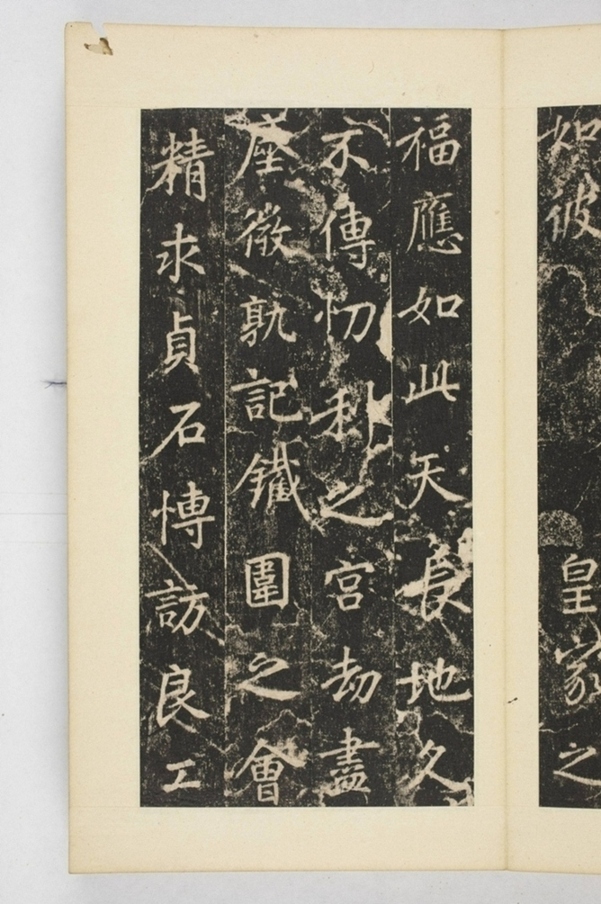 如彼皇家之
福應如此天長地久
不傳忉利之宮劫盡
塵微孰記鐵圍之會
精求貞石愽訪良工